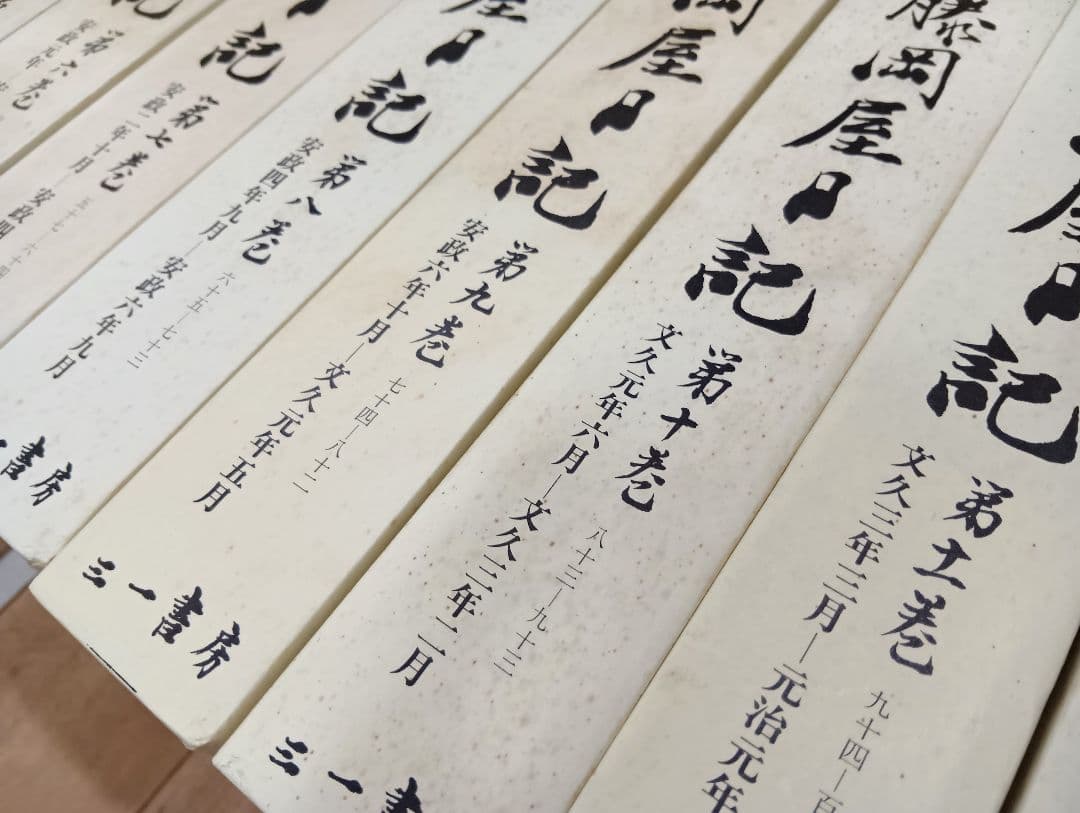 第六巻
安政元年
記
第七巻
安政二年十月―安政四
五十七―六十四
屋日記
第八巻
安政四年九月―安政六年九月
六十五―七十三
一書房
岡屋日記
第九巻
安政六年十月―文久元年五月
七十四―八十二
三一書房
藤岡屋日記
第十巻
文久元年六月―文久三年二月
八十三―九十三
三一書
屋日記
第十一巻
文久三年三月―元治元年
九十四―百